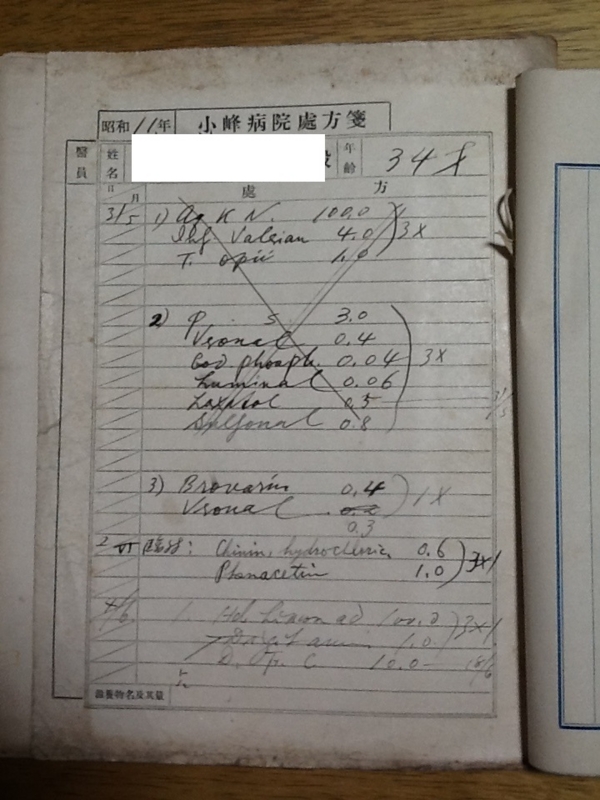 昭和11年 小峰病院處方箋
醫員
姓名 年齡 34才
日 月 處 方
31/5 1) Aq K N. 100.0
Inf Valerian 4.0 3X
T. opii 1.0
2) P. S. 3.0
Veronal 0.4
Cod phosph. 0.04 3X
Luminal 0.06
Laxatol 0.5
Sulfonal 0.8
31/5
3) Brovarin 0.4
Veronal 1X
0.3
2 VI 臨時: Chinin hydrochloric 0.6
Phenacetin 1.0
4/6 1. Limonad 100.0 3X
1.0
D. Op. C 10.0
滋養物名及其量